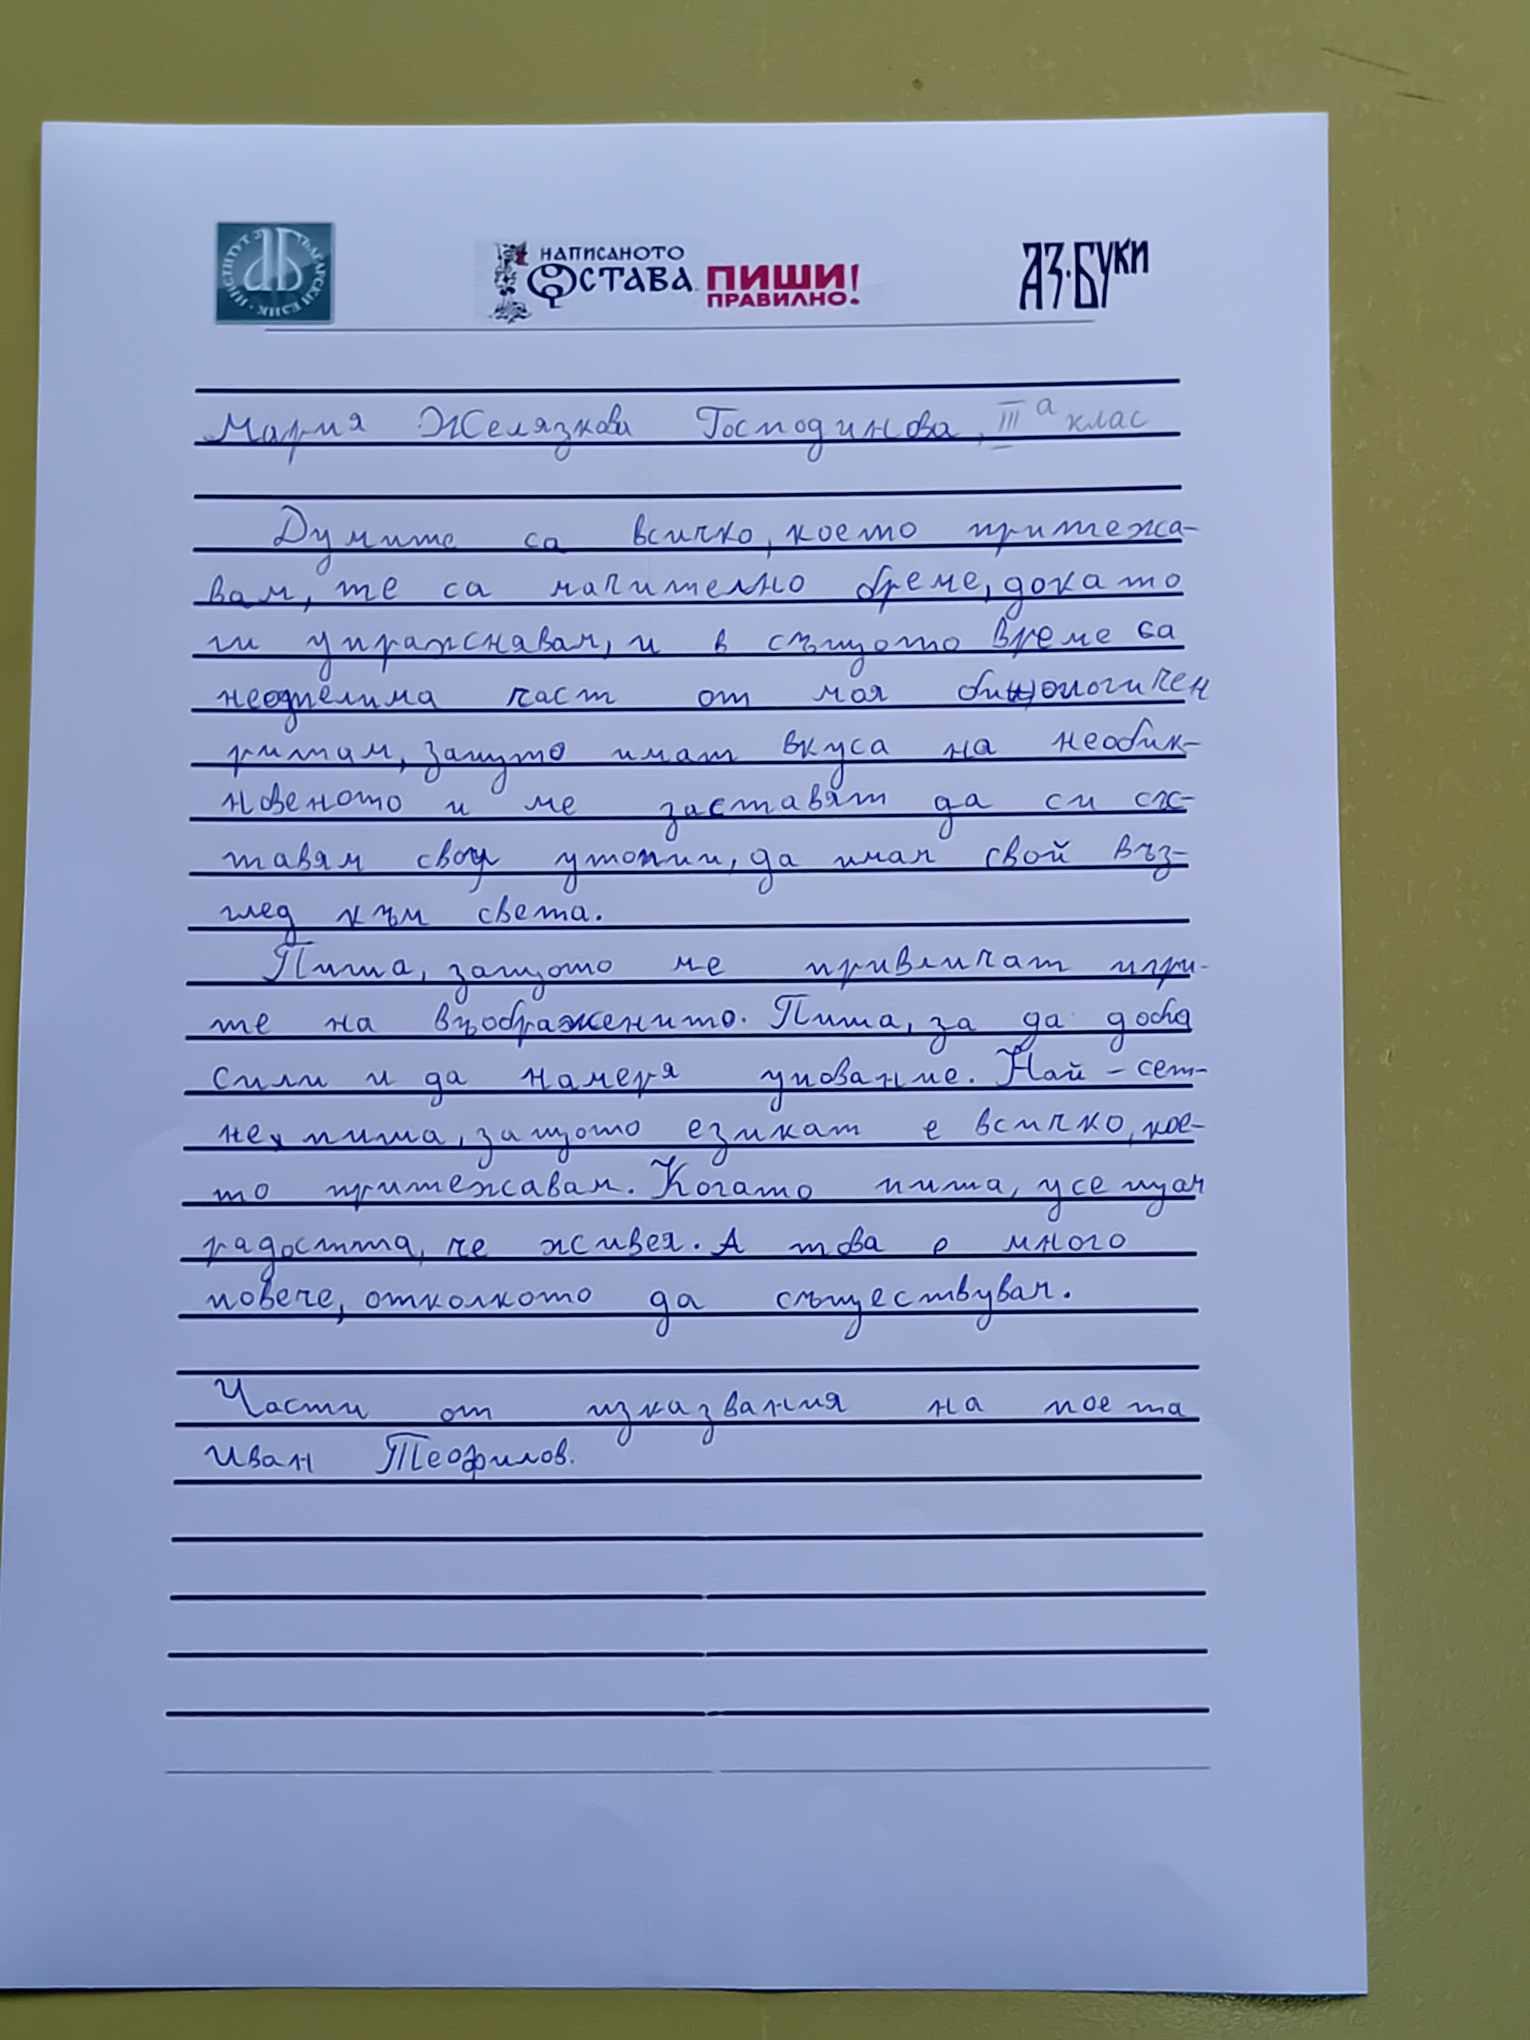 ИНСТИТУТ ЗА БЪЛГАРСКИ ЕЗИК
НАПИСАНОТО
ОСТАВА. ПИШИ
ПРАВИЛНО!
АЗ·БУКИ
Мария Желязкова Господинова, III а клас
Думите са всичко, което притежа-
вам, те са мъчително бреме, докато
ги упражнявам, и в същото време са
неделима част от моя биологичен
ритъм, защото имат вкуса на необик-
новеното и ме заставят да си със-
тавям свои утопии, да имам свой въз-
глед към света.
Пиша, защото ме привличат игри-
те на въображението. Пиша, за да добия
сили и да намеря упование. Най-сет-
не, пиша, защото езикът е всичко, кое-
то притежавам. Когато пиша, усещам
радостта, че живея. А това е много
повече, отколкото да съществувам.
Части от изказвания на поета
Иван Теофилов.